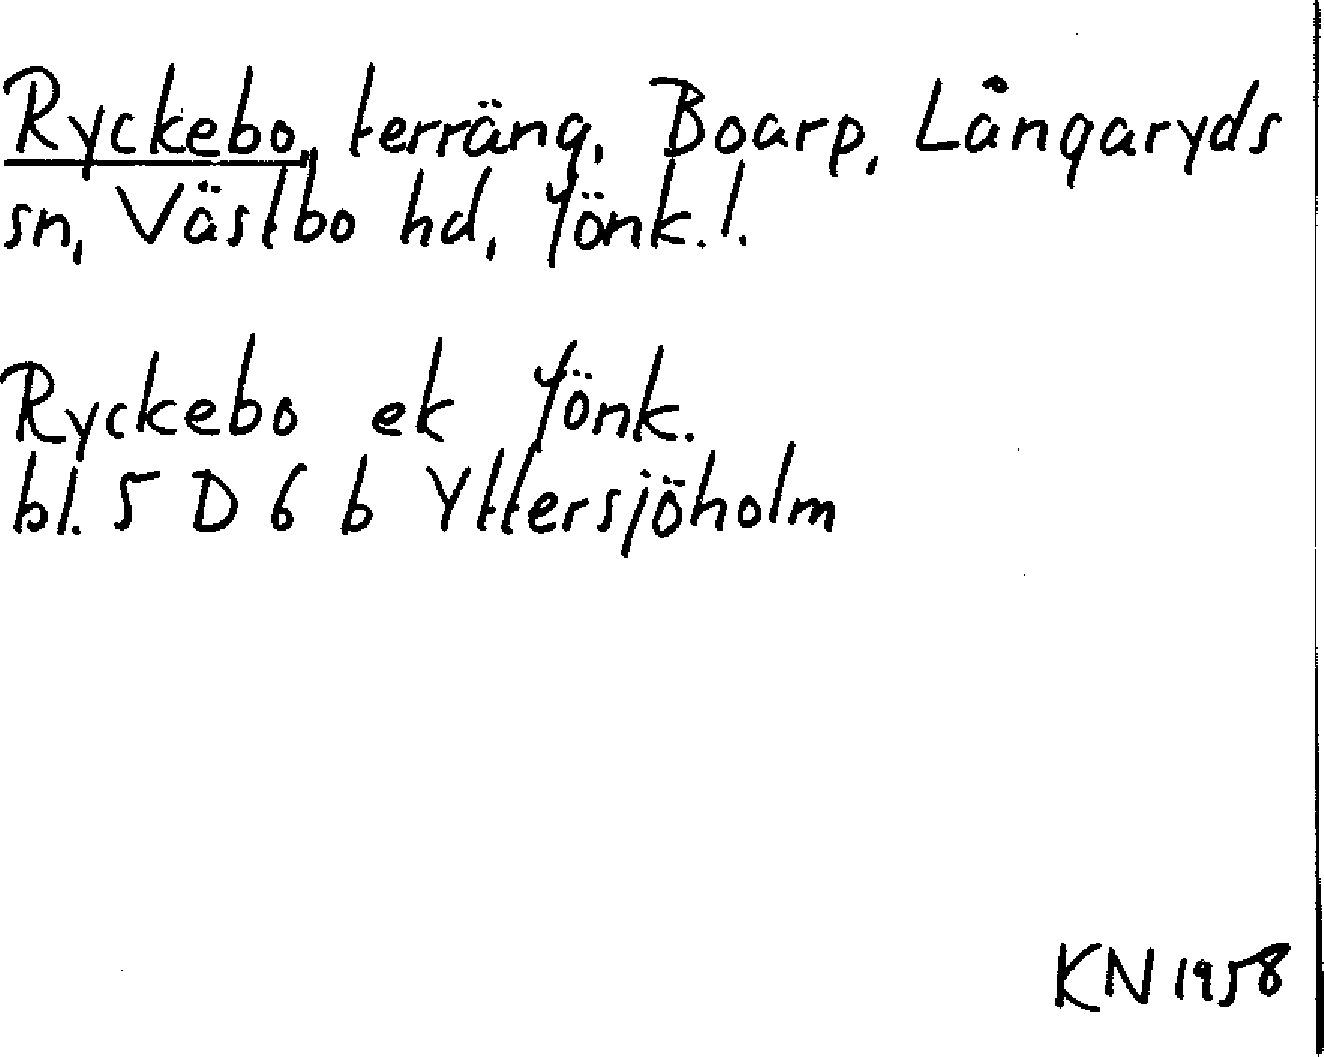 Ryckebo, terräng, Boarp, Långaryds
sn, Västbo hd, Jönk. l.
Ryckebo ek Jönk.
bl. 5 D 6 b Yttersjöholm
KN 1958